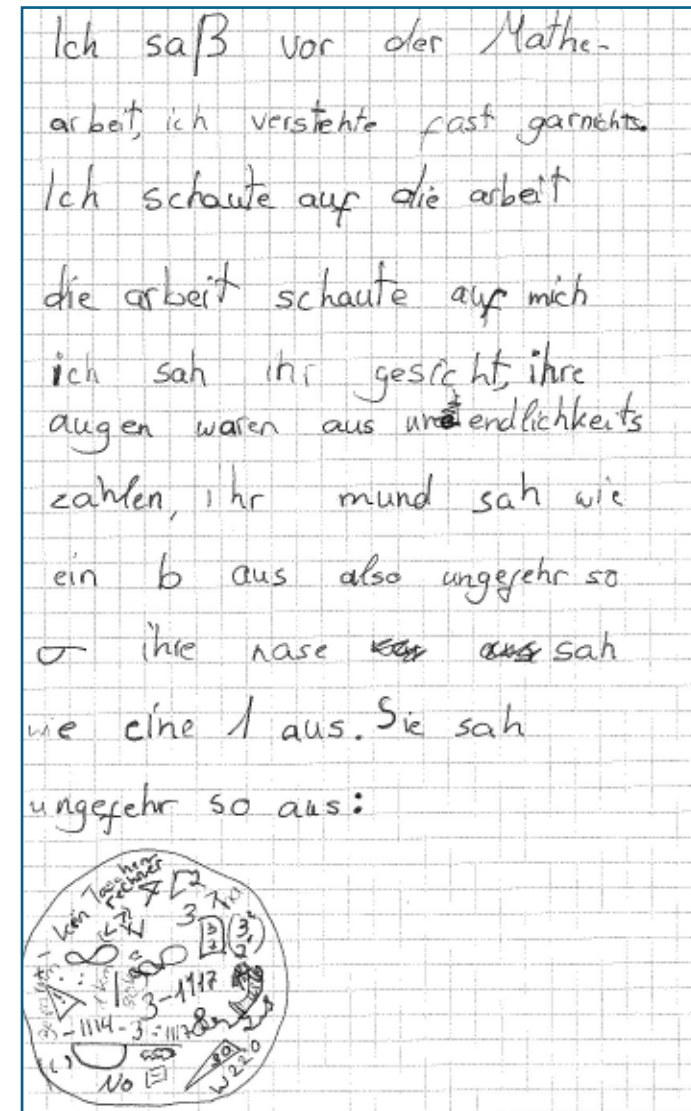 Ich saß vor der Mathe-
arbeit, ich verstehte fast garnichts.
Ich schaute auf die arbeit
die arbeit schaute auf mich
ich sah ihr gesicht, ihre
augen waren aus unendlichkeits
zahlen, ihr mund sah wie
ein b aus also ungefehr so
σ ihre nase sah
wie eine 1 aus. Sie sah
ungefehr so aus:
kein Taschen
rechner
3
∞ ∞
1 km
3-1917
3-1114-3
NO
80
W220